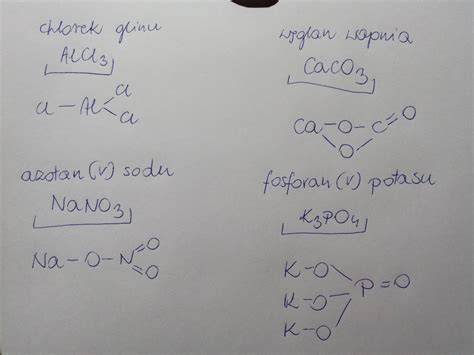 chlorek glinu
AlCl₃
Cl — Al
Cl
Cl
węglan wapnia
CaCO₃
Ca — O — C = O
O
azotan (V) sodu
NaNO₃
Na — O — N
O
O
fosforan (V) potasu
K₃PO₄
K — O
K — O — P = O
K — O